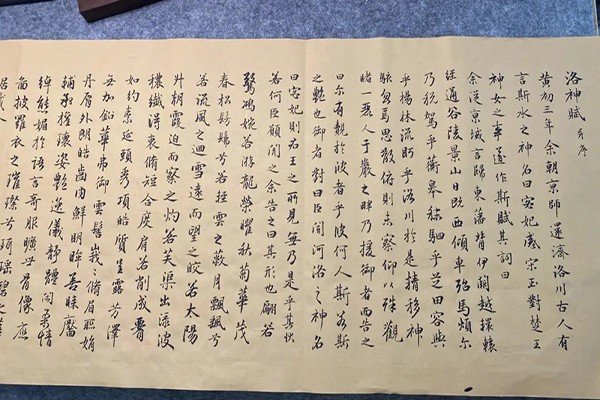 洛神賦 并序
黄初三年余朝京師還濟洛川古人有
言斯水之神名曰宓妃感宋玉對楚王
神女之事遂作斯賦其詞曰
余從京域言歸東藩背伊闕越轘轅
經通谷陵景山日既西傾車殆馬煩尔
乃税駕乎蘅皋秣駟乎芝田容與
乎楊林流眄乎洛川於是精移神
駭忽焉思散俯則未察仰以殊觀
睹一麗人于巖之畔乃援御者而告之
曰尔有覿於彼者乎彼何人斯若斯
之艷也御者對曰臣聞河洛之神名
曰宓妃則君王之所見無乃是乎其狀
若何臣願聞之余告之曰其形也翩若
驚鴻婉若游龍榮曜秋菊華茂
春松髣髴兮若輕雲之蔽月飄飄兮
若流風之迴雪遠而望之皎若太陽
升朝霞迫而察之灼若芙渠出渌波
穠纖得衷脩短合度肩若削成腰
如約素延頸秀項皓質呈露芳澤
無加鉛華弗御雲髻峩峩脩眉聯娟
丹唇外朗皓齒内鮮明眸善睞靨
輔承權瓌姿艷逸儀靜體閑柔情
綽態媚於語言奇服曠世骨像應
圖披羅衣之璀璨兮珥瑶碧之華